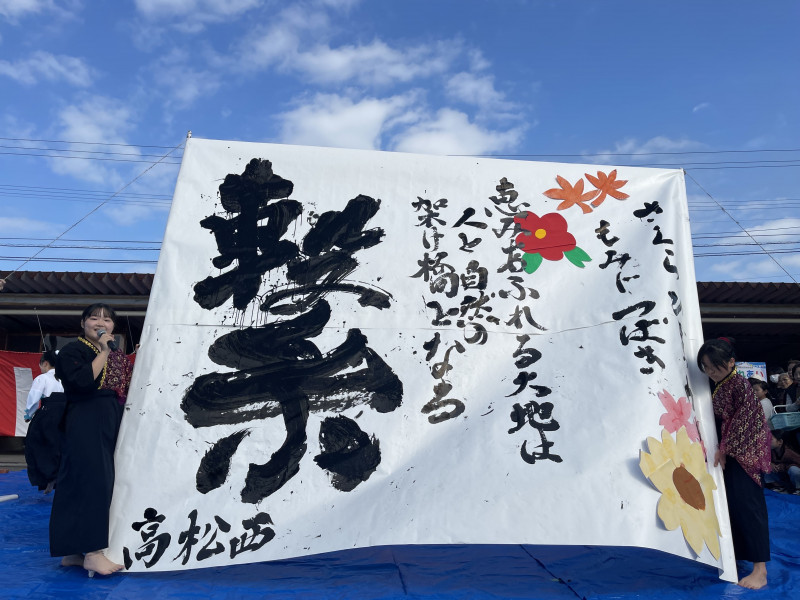 さんさん
もみじ
つばさ
恵みあふれる大地は
人と自然の
架け橋となる
繋
高松西